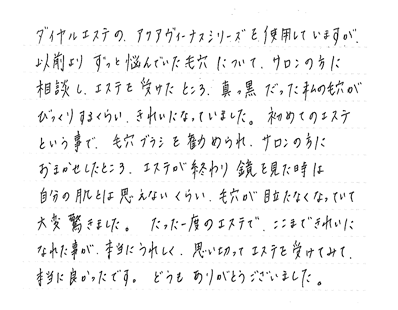 ダイヤルエステの、アクアヴィーナスシリーズを使用していますが、
以前より ずっと悩んでいた毛穴 について、サロンの方に
相談し、エステを受けた ところ、真っ黒 だった私の毛穴が
びっくりするくらい、きれいになっていました。 初めてのエステ
という事で、毛穴プランを勧められ、サロンの方に
おまかせしたところ、エステが終わり 鏡を見た時は
自分の肌とは思えないくらい、毛穴が目立たなくなっていて
大変 驚きました。 たった一度のエステで、ここまできれいに
なれた事が、本当にうれしく、思い切って エステを受けてみて、
本当に良かったです。 どうも ありがとうございました。